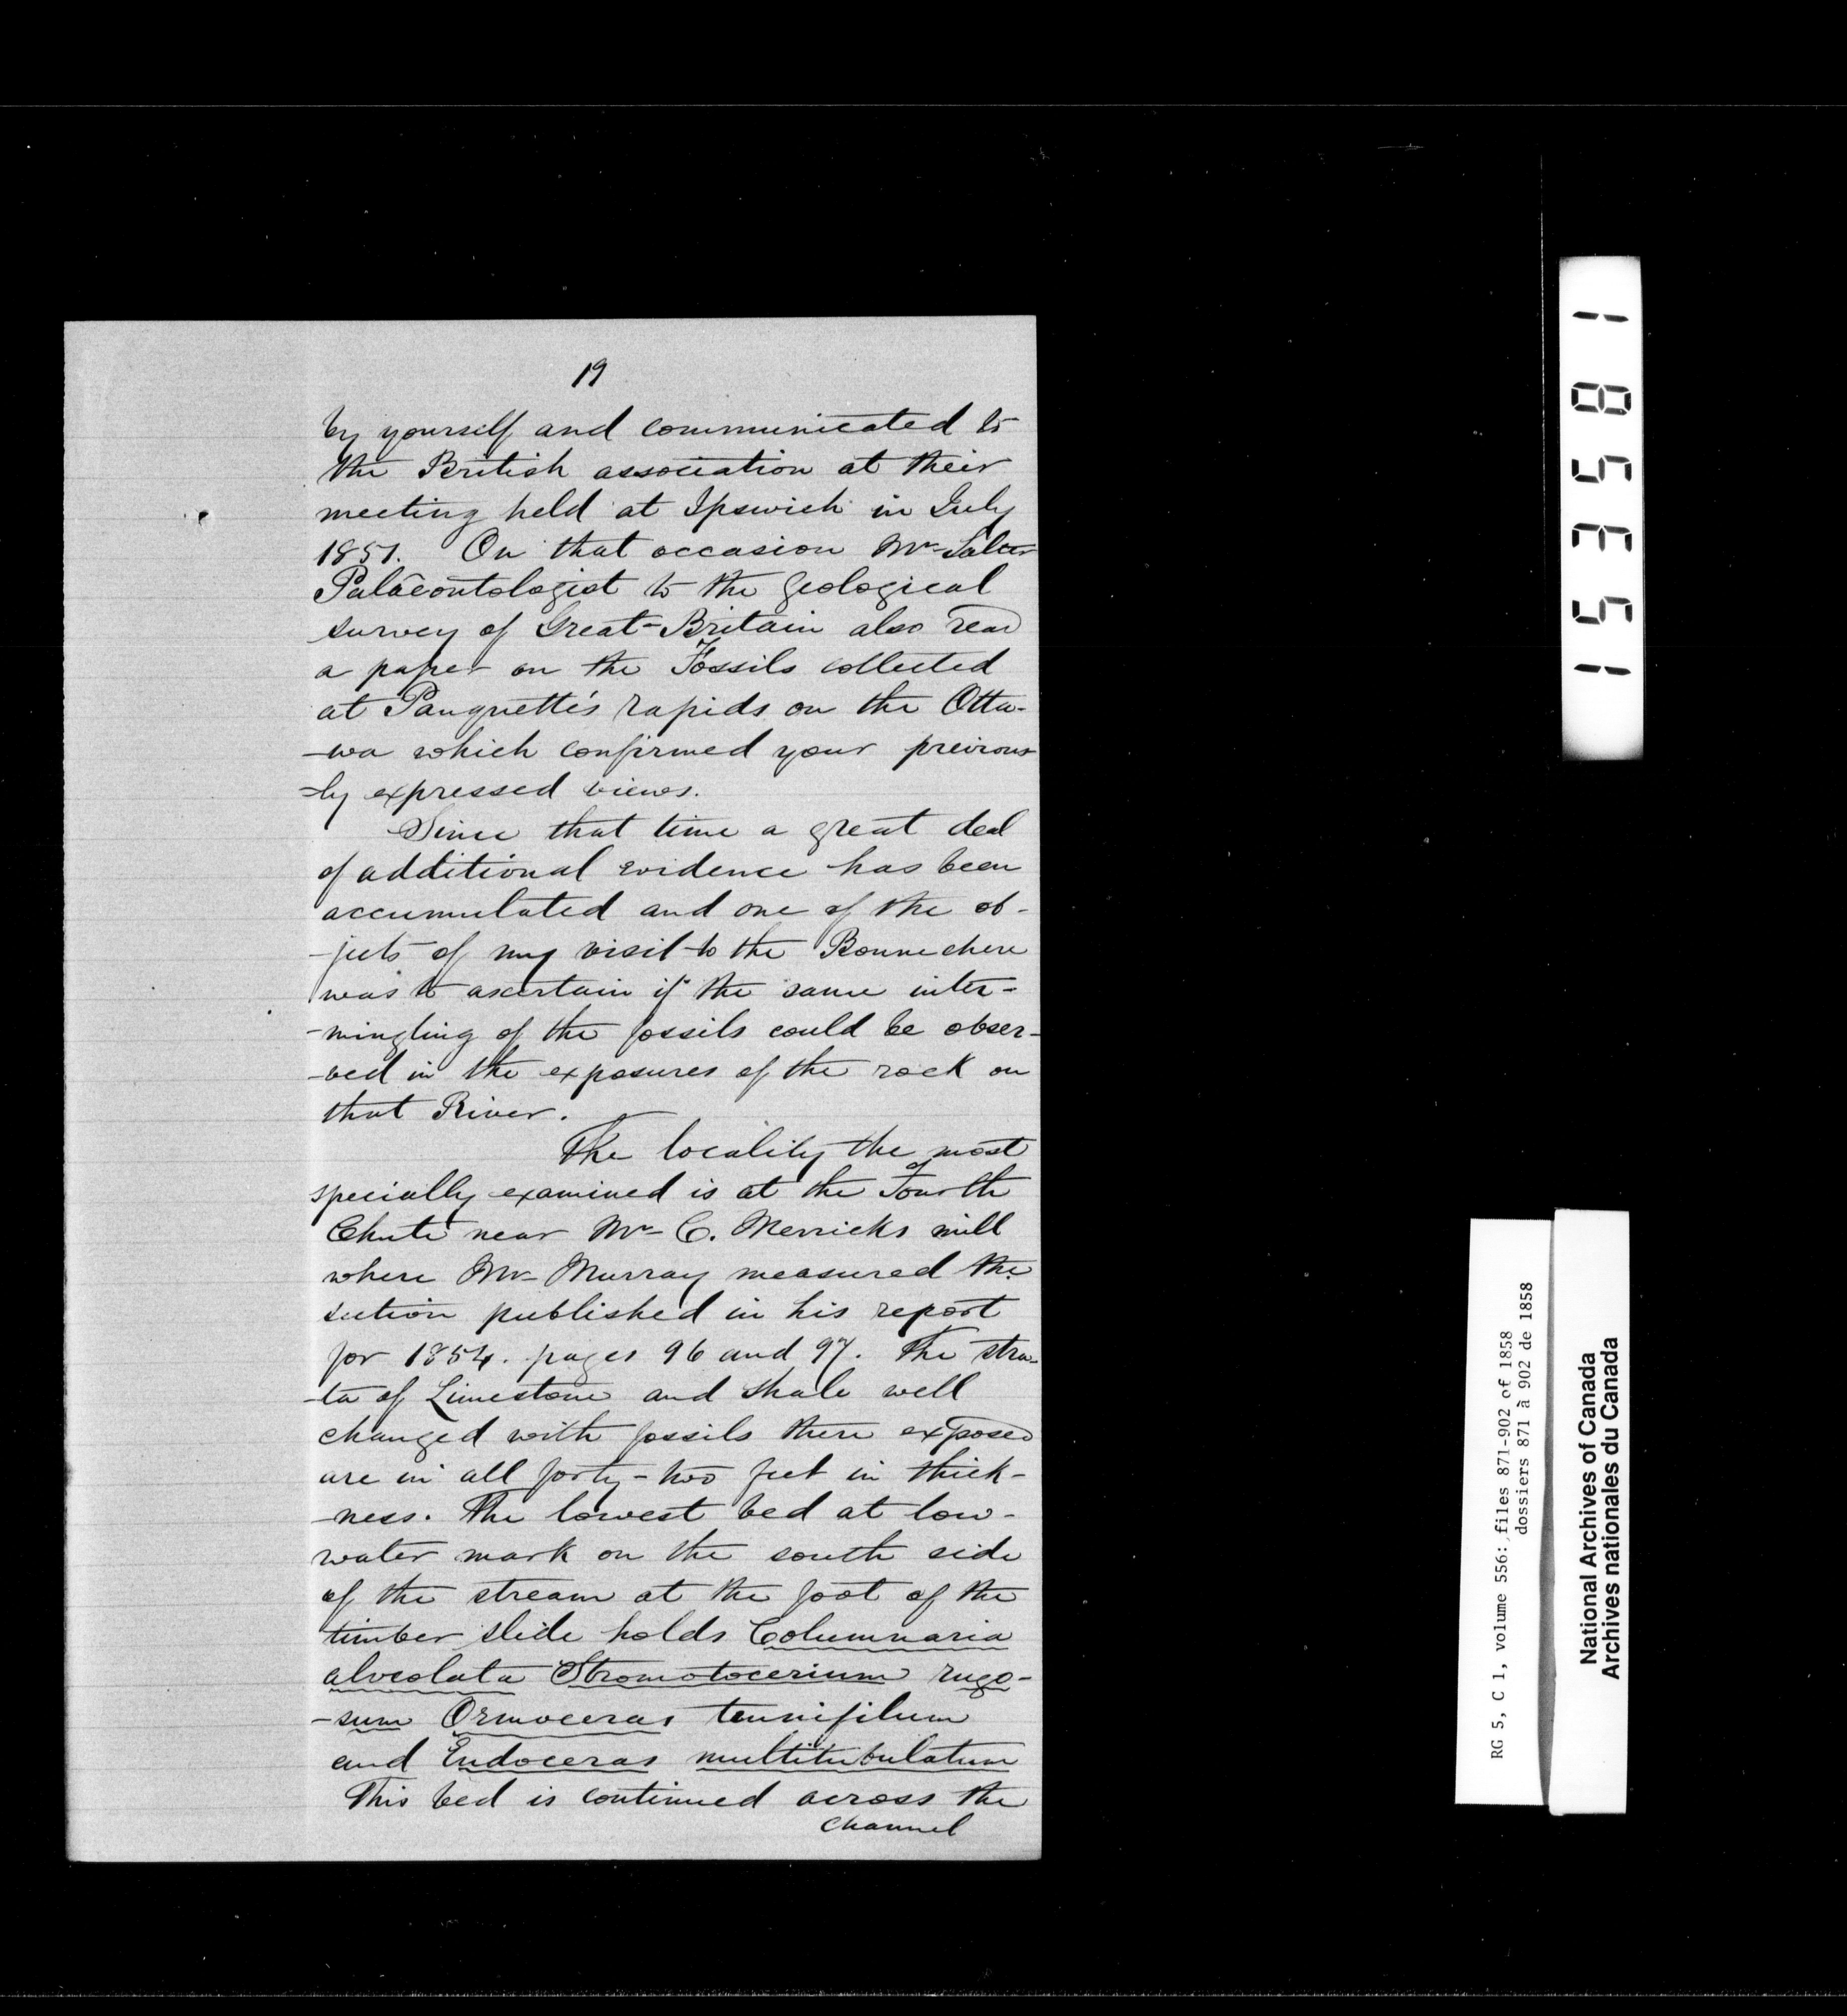 19
by yourself and communicated to
the British association at their
meeting held at Ipswich in July
1851. On that occasion Mr Salter
Palæontologist to the geological
survey of Great-Britain also read
a paper on the Fossils collected
at Pauquette's rapids on the Otta-
-wa which confirmed your previous
-ly expressed views.
Since that time a great deal
of additional evidence has been
accumulated and one of the ob-
-jects of my visit to the Bonnechere
was to ascertain if the same inter-
-mingling of the fossils could be obser-
-ved in the exposures of the rock on
that River.
The locality the most
specially examined is at the Fourth
Chute near Mr C. Merricks mill
where Mr Murray measured the
section published in his report
for 1854. pages 96 and 97. The stra-
-ta of Limestone and shale well
changed with fossils there exposed
are in all forty-two feet in thick-
-ness. The lowest bed at low-
water mark on the south side
of the stream at the foot of the
timber slide holds Columnaria
alveolata Stromotocerium rugo-
-sum Ormoceras tenuifilum
and Endoceras multitubulatum
This bed is continued across the
channel
153581
RG 5, C 1, volume 556: files 871-902 of 1858
dossiers 871 à 902 de 1858
National Archives of Canada
Archives nationales du Canada